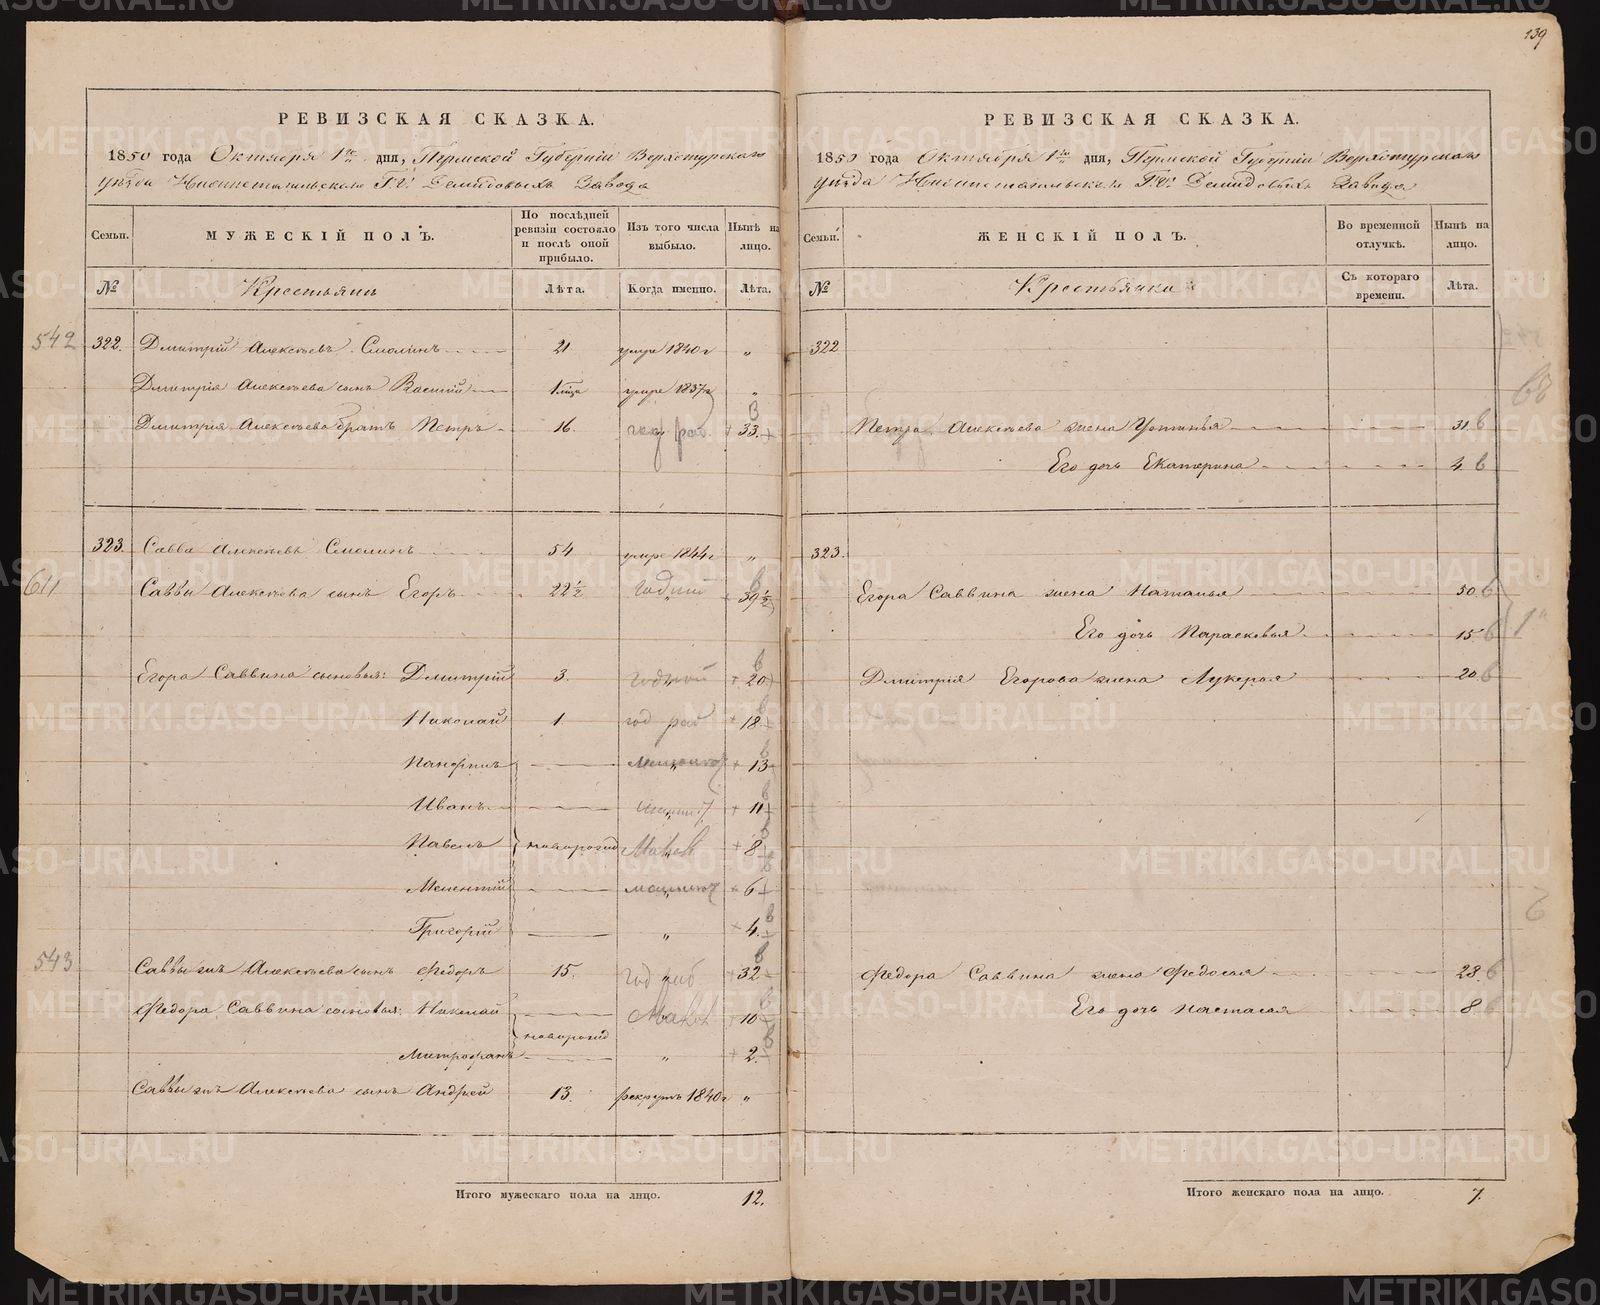 139
РЕВИЗСКАЯ СКАЗКА.
1850 года Октября 1го дня, Пермской Губерніи Верхотурскаго
уѣзда Нижнетагильскаго Г.г. Демидовыхъ Завода
Семьи. МУЖЕСКІЙ ПОЛЪ. По послѣдней ревизіи состояло и послѣ оной прибыло. Изъ того числа выбыло. Нынѣ на лицо.
№ Крестьянъ Лѣта. Когда именно. Лѣта.
542 322. Дмитрій Алексѣевъ Смолинъ 21 умре 1840 г „
Дмитрія Алексѣева сынъ Василій умре 1837 г „
Дмитрія Алексѣева братъ Петръ 16. + 33. +
323. Савва Алексѣевъ Смолинъ 54 умре 1844 г „
611 Саввы Алексѣева сынъ Егоръ 22 ½ годный 39 ½
Егора Саввина сыновья: Дмитрій 3. годной + 20
Николай 1 год раб + 18
Панфилъ + 13
Иванъ + 11
Павелъ новорожд + 8
Мелентій + 6
Григорій „ + 4.
543 Саввы жъ Алексѣева сынъ Федоръ 15. год раб + 32
Федора Саввина сыновья: Николай + 10
новорожд
Митрофанъ „ + 2.
Саввы жъ Алексѣева сынъ Андрей 13. рекрутъ 1840 г „
Итого мужескаго пола на лицо. 12.
РЕВИЗСКАЯ СКАЗКА.
1850 года Октября 1го дня, Пермской Губерніи Верхотурскаго
уѣзда Нижнетагильскаго Г.г. Демидовыхъ Завода
Семьи. ЖЕНСКІЙ ПОЛЪ. Во временной отлучкѣ. Нынѣ на лицо.
№ Крестьянки Съ котораго времени. Лѣта.
322
Петра Алексѣева жена Устинья 31. в
Его дочь Екатерина 4. в
323.
Егора Саввина жена Наталья 50. в
Его дочь Парасковья 15. в
Дмитрія Егорова жена Лукерья 20 в
Федора Саввина жена Федосья 28. в
Его дочь Настасья 8 в
Итого женскаго пола на лицо. 7.
METRIKI.GASO-URAL.RU